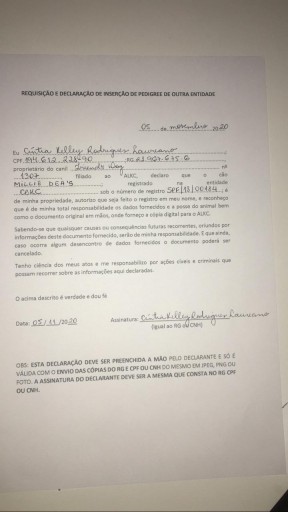 REQUISIÇÃO E DECLARAÇÃO DE INSERÇÃO DE PEDIGREE DE OUTRA ENTIDADE
05 de novembro 2020
Eu Cintia Kelley Rodrigues Laureano
CPF RG
proprietário do canil nº
1307 filiado ao ALKC, declaro que o cão
MILLIE DEH'S registrado na entidade
CBKC sob o número de registro é
de minha propriedade, autorizo que seja feito o registro em meu nome, e reconheço
que é de minha total responsabilidade os dados fornecidos e a posse do animal bem
como o documento original em mãos, onde forneço a cópia digital para o ALKC.
Sabendo-se que quaisquer causas ou consequências futuras recorrentes, oriundos por
informações deste documento fornecido, serão de minha responsabilidade. E que ainda,
caso ocorra algum desencontro de dados fornecidos o documento poderá ser
cancelado.
Tenho ciência dos meus atos e me responsabilizo por ações cíveis e criminais que
possam recorrer sobre as informações aqui declaradas.
O acima descrito é verdade e dou fé
Data: 05/11/2020 Assinatura: Cintia Kelley Rodrigues Laureano
(Igual ao RG ou CNH)
OBS: ESTA DECLARAÇÃO DEVE SER PREENCHIDA A MÃO PELO DECLARANTE E SÓ É
VÁLIDA COM O ENVIO DAS CÓPIAS DO RG E CPF OU CNH DO MESMO EM JPEG, PNG OU
FOTO. A ASSINATURA DO DECLARANTE DEVE SER A MESMA QUE CONSTA NO RG CPF
OU CNH.